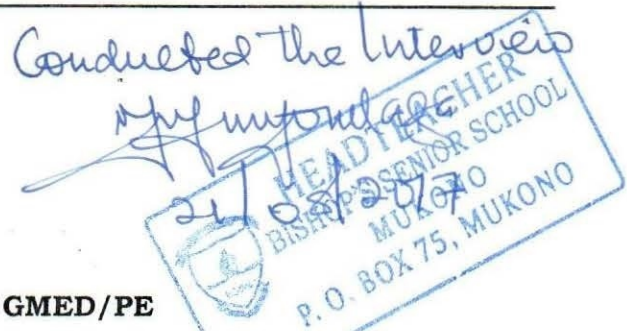 Conducted the Interview
21/08/2017
HEADTEACHER
BISHOP'S SENIOR SCHOOL
MUKONO
P. O. BOX 75, MUKONO
GMED/PE